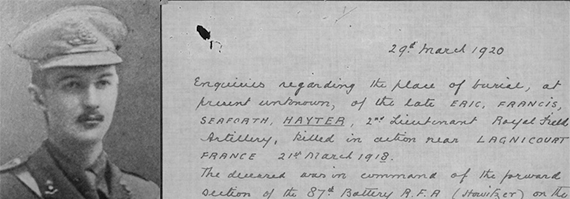 29th March 1920
Enquiries regarding the place of burial, at
present unknown, of the late ERIC, FRANCIS,
SEAFORTH, HAYTER, 2nd Lieutenant Royal Field
Artillery, killed in action near LAGNICOURT
FRANCE 21st March 1918.
The deceased was in command of the forward
section of the 87th Battery R.F.A (Howitzer) on the